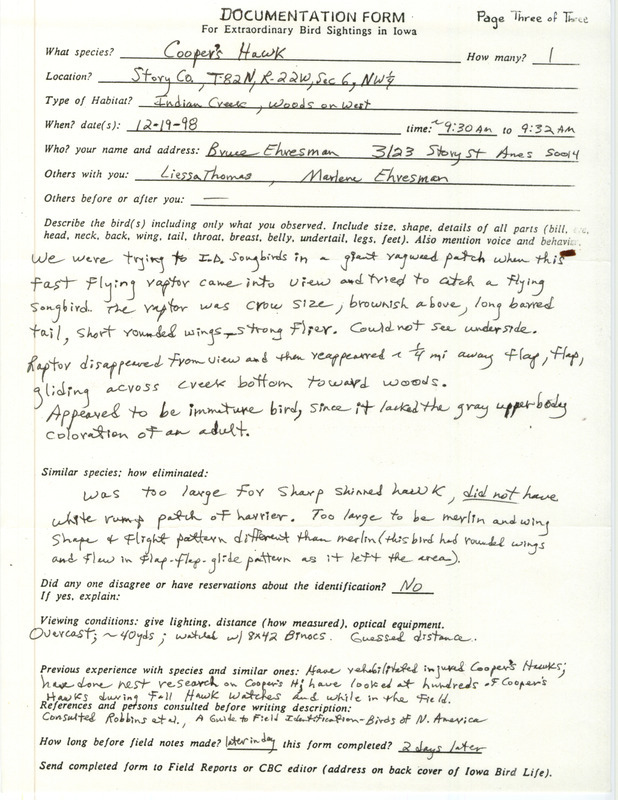 DOCUMENTATION FORM
Page Three of Three
For Extraordinary Bird Sightings in Iowa
What species? Cooper's Hawk How many? 1
Location? Story Co., T-82N, R-22W, Sec 6, NW¼
Type of Habitat? Indian Creek, woods on west
When? date(s): 12-19-98 time: ~9:30 AM to 9:32 AM
Who? your name and address: Bruce Ehresman 3123 Story St Ames 50014
Others with you: Liessa Thomas, Marlene Ehresman
Others before or after you: —
Describe the bird(s) including only what you observed. Include size, shape, details of all parts (bill, etc.
head, neck, back, wing, tail, throat, breast, belly, undertail, legs, feet). Also mention voice and behavior.
We were trying to I.D. Songbirds in a giant ragweed patch when this
fast flying raptor came into view and tried to catch a flying
songbird. The raptor was crow size, brownish above, long barred
tail, short rounded wings - strong flier. Could not see underside.
Raptor disappeared from view and then reappeared ~ ¼ mi away flap, flap,
gliding across creek bottom toward woods.
Appeared to be immature bird, since it lacked the gray upper body
coloration of an adult.
Similar species; how eliminated:
Was too large for Sharp shinned hawk, did not have
white rump patch of harrier. Too large to be merlin and wing
Shape & flight pattern different than merlin (this bird had rounded wings
and flew in flap-flap-glide pattern as it left the area).
Did any one disagree or have reservations about the identification? No
If yes, explain:
Viewing conditions: give lighting, distance (how measured), optical equipment.
Overcast; ~40yds; watched w/ 8x42 Binocs. Guessed distance.
Previous experience with species and similar ones: Have rehabilitated injured Cooper's Hawks;
have done nest research on Cooper's H; have looked at hundreds of Cooper's
Hawks during Fall Hawk Watches and while in the field.
References and persons consulted before writing description:
Consulted Robbins et al., A Guide to Field Identification - Birds of N. America
How long before field notes made? later in day this form completed? 2 days later
Send completed form to Field Reports or CBC editor (address on back cover of Iowa Bird Life).